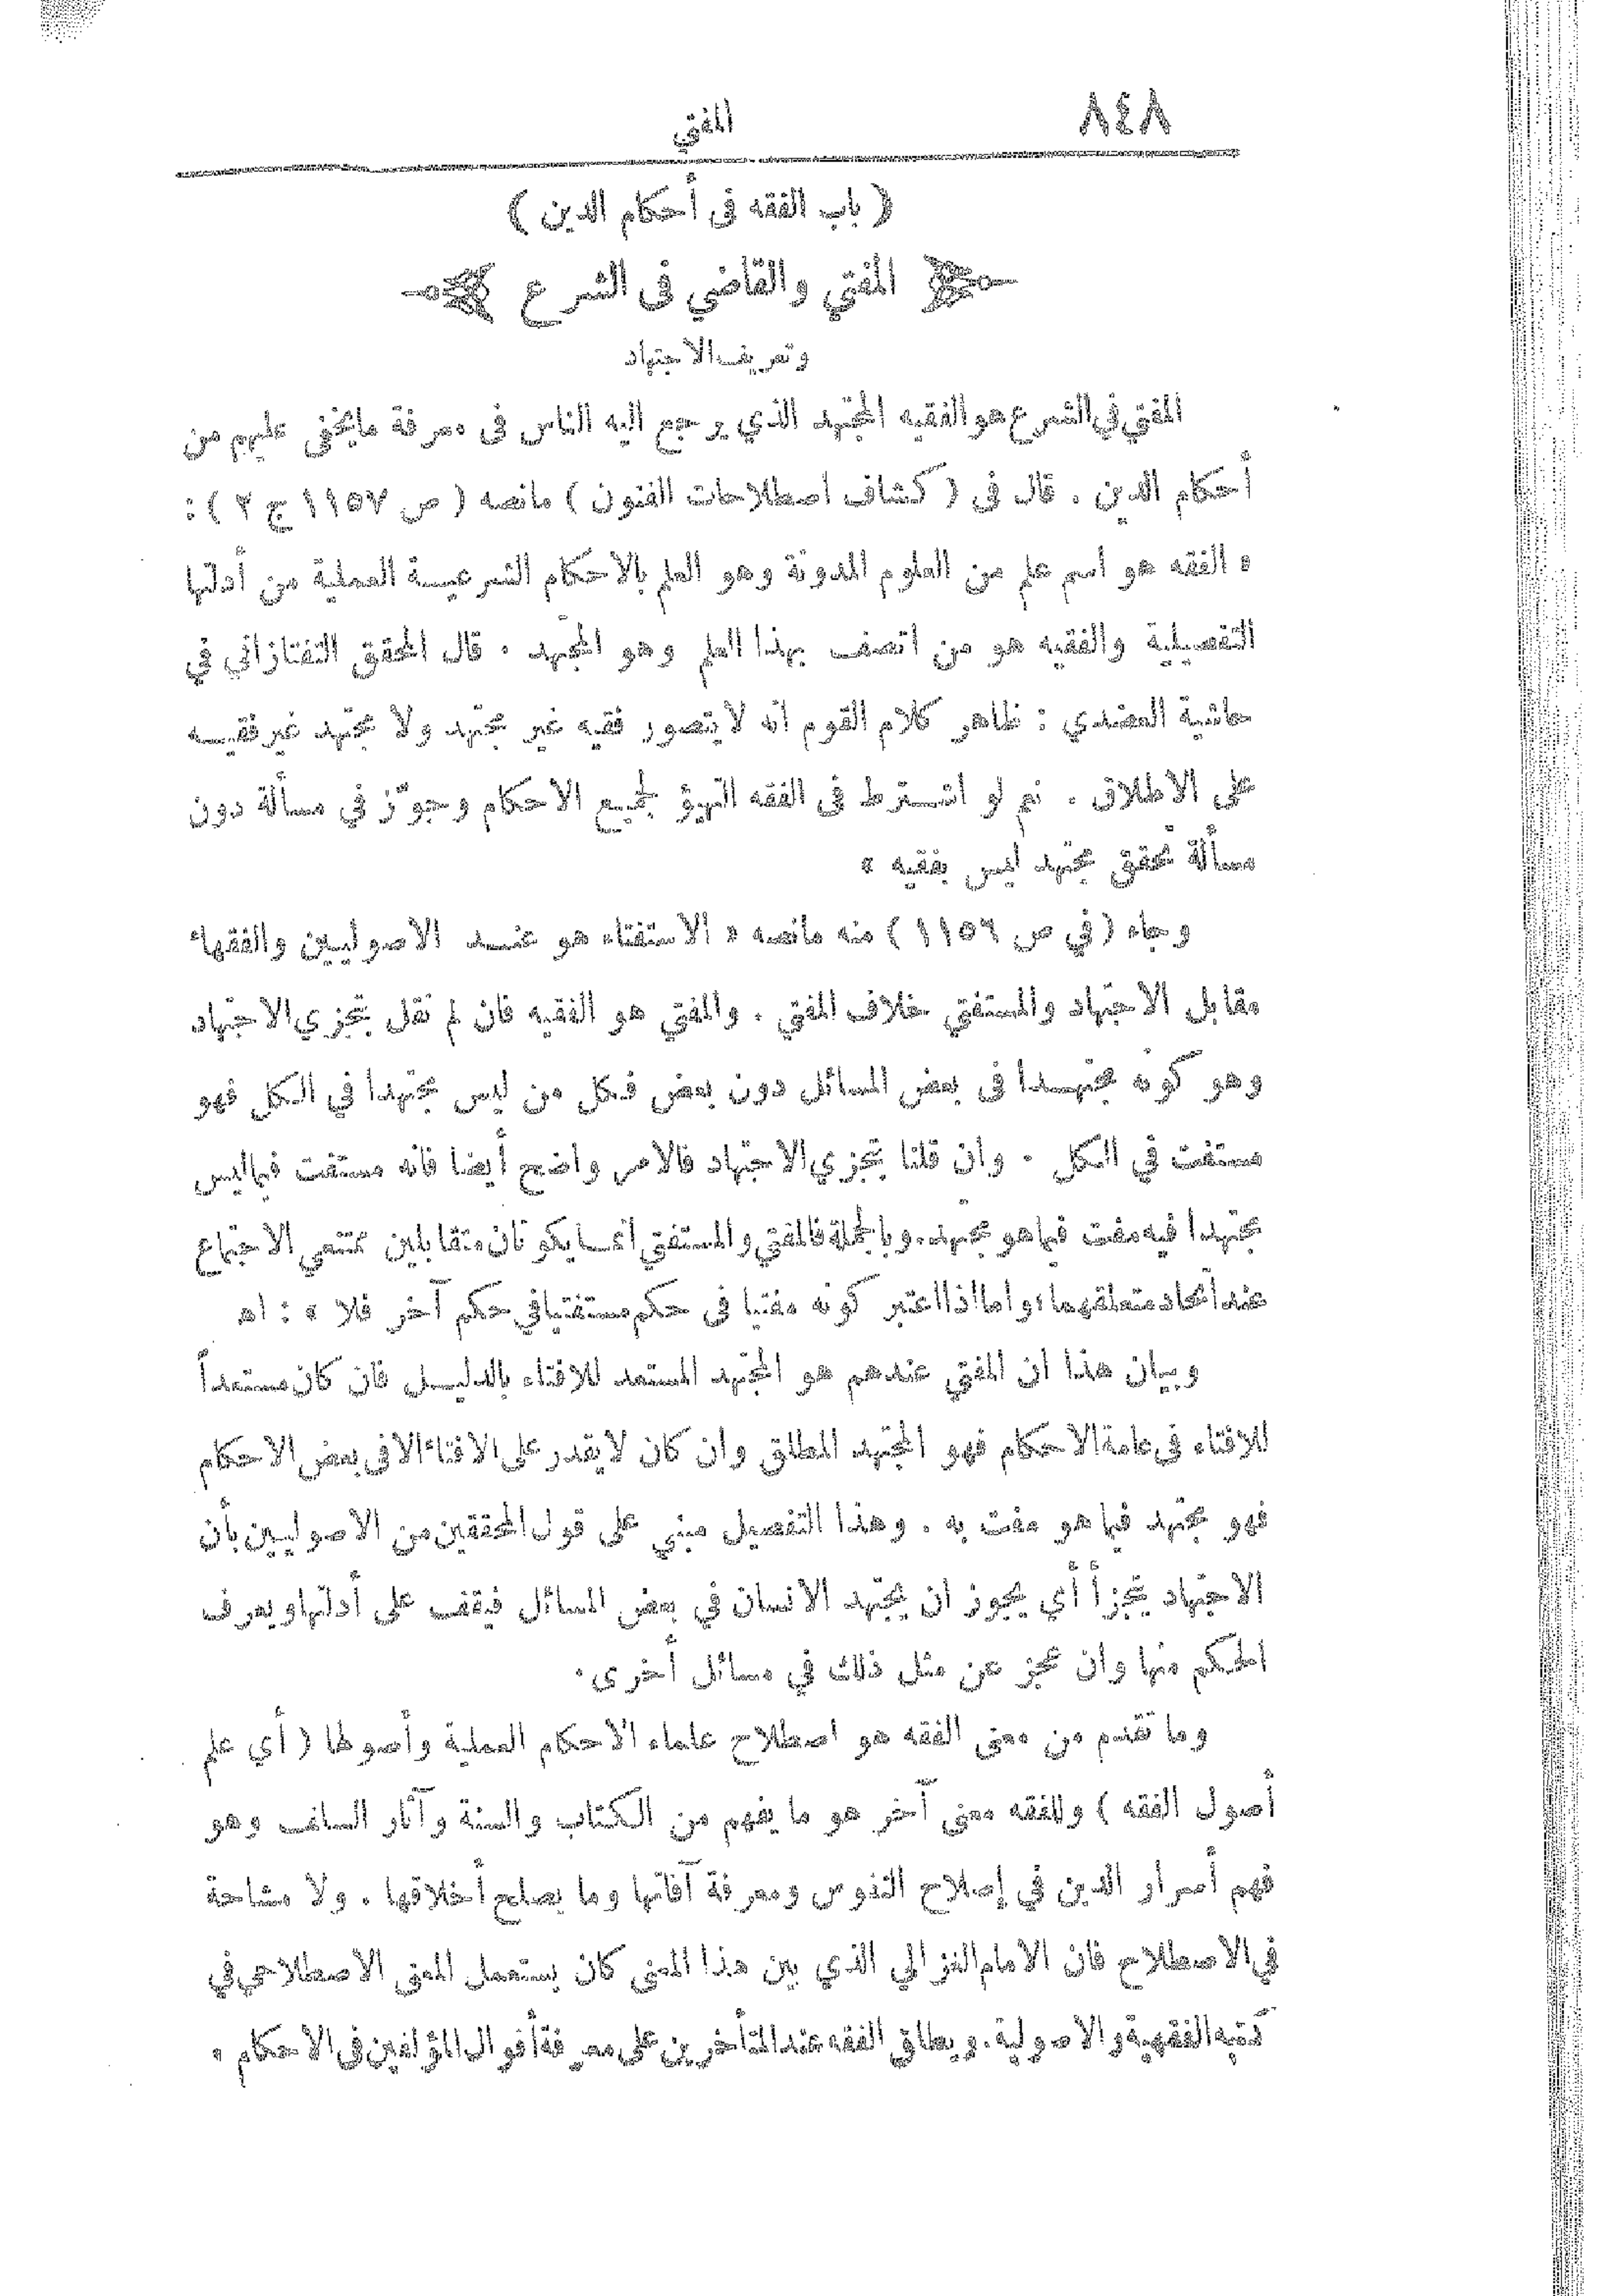 ٨٤٨
المفتي
( باب الفقه فى أحكام الدين )
المفتي والقاضي فى الشرع
وتعريف الاجتهاد
المفتي في الشرع هو الفقيه المجتهد الذي يرجع اليه الناس فى معرفة ما يخفى عليهم من
أحكام الدين . قال فى ( كشاف اصطلاحات الفنون ) مانصه ( ص ١١٥٧ ج ٢ ) :
« الفقه هو اسم علم من العلوم المدونة وهو العلم بالاحكام الشرعيــة العملية من أدلتها
التفصيلية والفقيه هو من اتصف بهذا العلم وهو المجتهد . قال المحقق التفتازاني في
حاشية العضدي : ظاهر كلام القوم انه لا يتصور فقيه غير مجتهد ولا مجتهد غير فقيــه
على الاطلاق . نعم لو اشــترط فى الفقه التهيؤ لجميع الاحكام وجوّز في مسألة دون
مسألة تحقق مجتهد ليس بفقيه »
وجاء ( في ص ١١٥٦ ) منه مانصه « الاستفتاء هو عنــد الاصوليــين والفقهاء
مقابل الاجتهاد والمستفتي خلاف المفتي . والمفتي هو الفقيه فان لم نقل بتجزي الاجتهاد
وهو كونه مجتهــدا فى بعض المسائل دون بعض فكل من ليس مجتهدا في الكل فهو
مستفت في الكل . وان قلنا بتجزي الاجتهاد فالامر واضح أيضا فانه مستفت فيما ليس
مجتهدا فيه مفت فيما هو مجتهد. وبالجملة فالمفتي والمستفتي انمــا يكونان متقابلين ممتنعي الاجتماع
عند اتحاد متعلقهما، واما اذا اعتبر كونه مفتيا فى حكم مستفتيا في حكم آخر فلا » : اهـ
وبيان هذا ان المفتي عندهم هو المجتهد المستعد للافتاء بالدليــل فان كان مستعداً
للافتاء فى عامة الاحكام فهو المجتهد المطلق وان كان لا يقدر على الافتاء الا فى بعض الاحكام
فهو مجتهد فيما هو مفت به . وهذا التفصيل مبني على قول المحققين من الاصوليــين بأن
الاجتهاد يتجزأ أي يجوز ان يجتهد الانسان في بعض المسائل فيقف على أدلتها ويعرف
الحكم منها وان عجز عن مثل ذلك في مسائل أخرى.
وما تقدم من معنى الفقه هو اصطلاح علماء الاحكام العملية وأصولها ( أي علم
أصول الفقه ) وللفقه معنى آخر هو ما يفهم من الكتاب والسنة وآثار السلف وهو
فهم أسرار الدين في إصلاح النفوس ومعرفة آفاتها وما يصلح أخلاقها . ولا مشاحة
في الاصطلاح فان الامام الغزالي الذي بين هذا المعنى كان يستعمل المعنى الاصطلاحي في
كتبه الفقهية والاصولية. ويطلق الفقه عند المتأخرين على معرفة أقوال المؤلفين فى الاحكام .